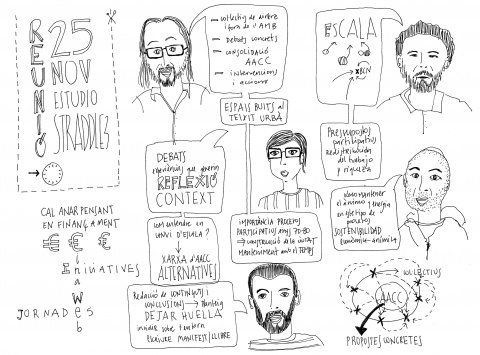 REUNIÓ
25
NOV
ESTUDIO
STRADDLE3
CAL ANAR PENSANT
EN FINANÇAMENT
€ € €
INICIATIVES
JORNADES
Web
- col·lectius de dintre
i fora de l'AMB
- Debats concrets
- CONSOLIDACIÓ
AACC
- intervencions
i accions
ESPAIS BUITS al
TEIXIT URBÀ
ESCALA
BCN
PRESUPUESTOS
participativos
Redistribución
del trabajo
y riqueza
DEBATS
que
REFLEXIÓ
CONTEXT
com entendre un
canvi d'escala?
XARXA d'AACC
ALTERNATIVES
IMPORTÀNCIA PROCESOS
PARTICIPATIUS anys 70-80
CONSTRUCCIÓ de la CIUTAT
MANTENIMENT amb el TEMPS
Cómo mantener
el ánimo y energía
en este tipo de
procesos
SOSTENIBILIDAD
económica-anímica
Redacció de CONTINGUTS i
CONCLUSIONS
DEJAR HUELLA
incidir sobre
ESCRIURE MANIFEST/LLIBRE
COL·LECTIUS
AACC
PROPOSTES CONCRETES